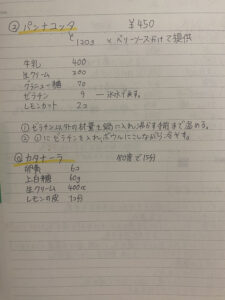 ② パンナコッタ ¥450
120g ベリーソースかけて提供
牛乳 400
生クリーム 200
グラニュー糖 70
ゼラチン 9 — 氷水で戻す。
レモンカット 2コ
① ゼラチン以外の材料を鍋に入れ、沸かす手前まで温める。
② ①にゼラチンを入れ、ボウルにこしながら冷やす。
② カタナーラ 160度で15分
卵黄 6コ
上白糖 60g
生クリーム 400cc
レモンの皮 1コ分